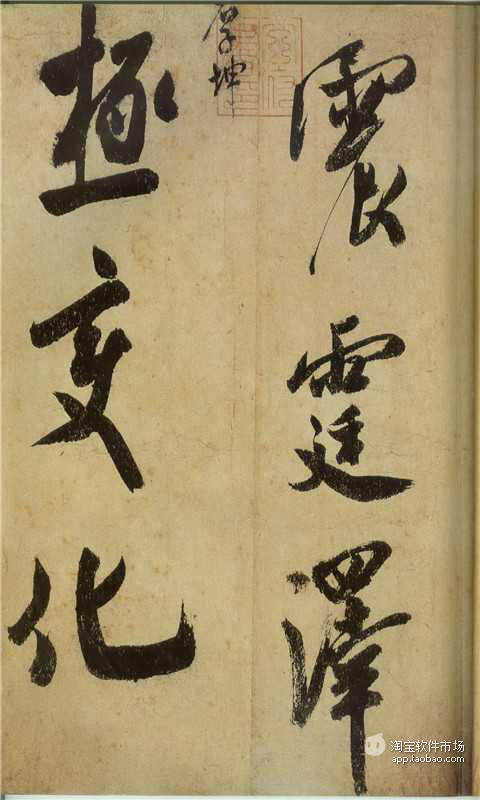 震霆澤
厚坤
極变化
淘宝软件市场
app.taobao.com